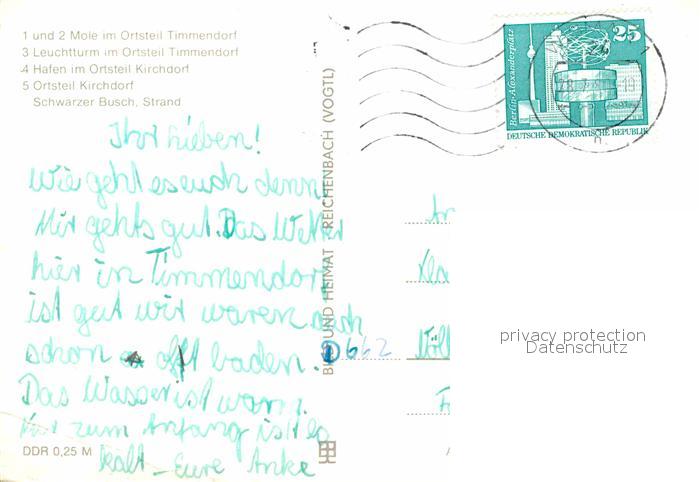 1 und 2 Mole im Ortsteil Timmendorf
3 Leuchtturm im Ortsteil Timmendorf
4 Hafen im Ortsteil Kirchdorf
5 Ortsteil Kirchdorf
Schwarzer Busch, Strand
Ihr Lieben!
Wie geht es euch denn?
Mir gehts gut. Das Wetter
hier in Timmendorf
ist gut wir waren auch
schon oft baden.
Das Wasser ist warm.
Nur zum Anfang ist es
kalt - Eure Anke
DDR 0,25 M
BILD UND HEIMAT REICHENBACH (VOGTL)
Berlin-Alexanderplatz
25
DEUTSCHE DEMOKRATISCHE REPUBLIK
662
privacy protection
Datenschutz